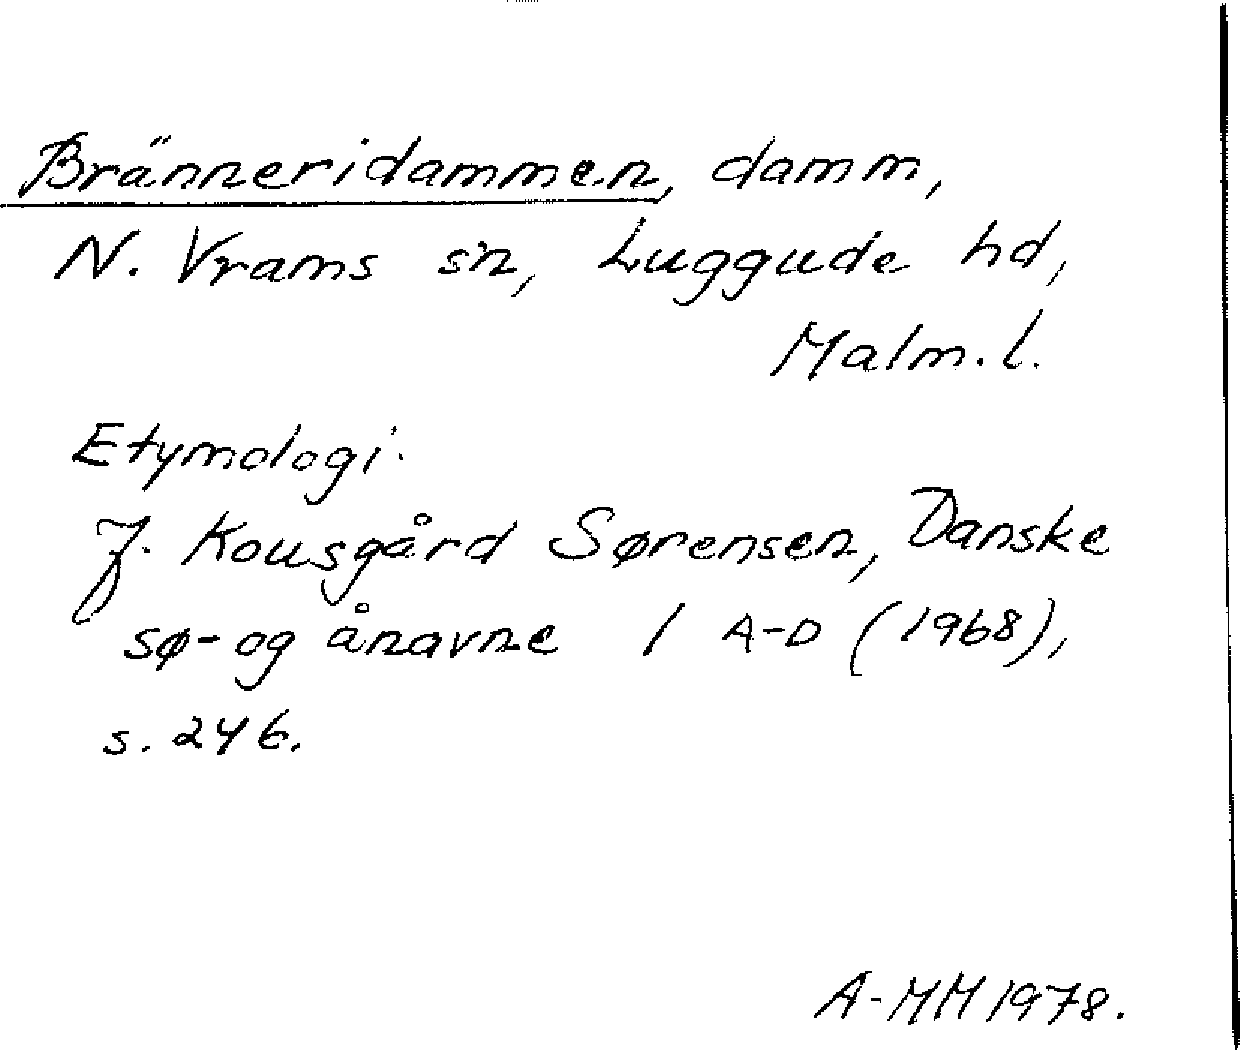 Bränneridammen, damm,
N. Vrams sn, Luggude hd,
Malm. l.
Etymologi:
J. Kousgård Sørensen, Danske
sø- og ånavne 1 A-D (1968),
s. 246.
A-MM 1978.